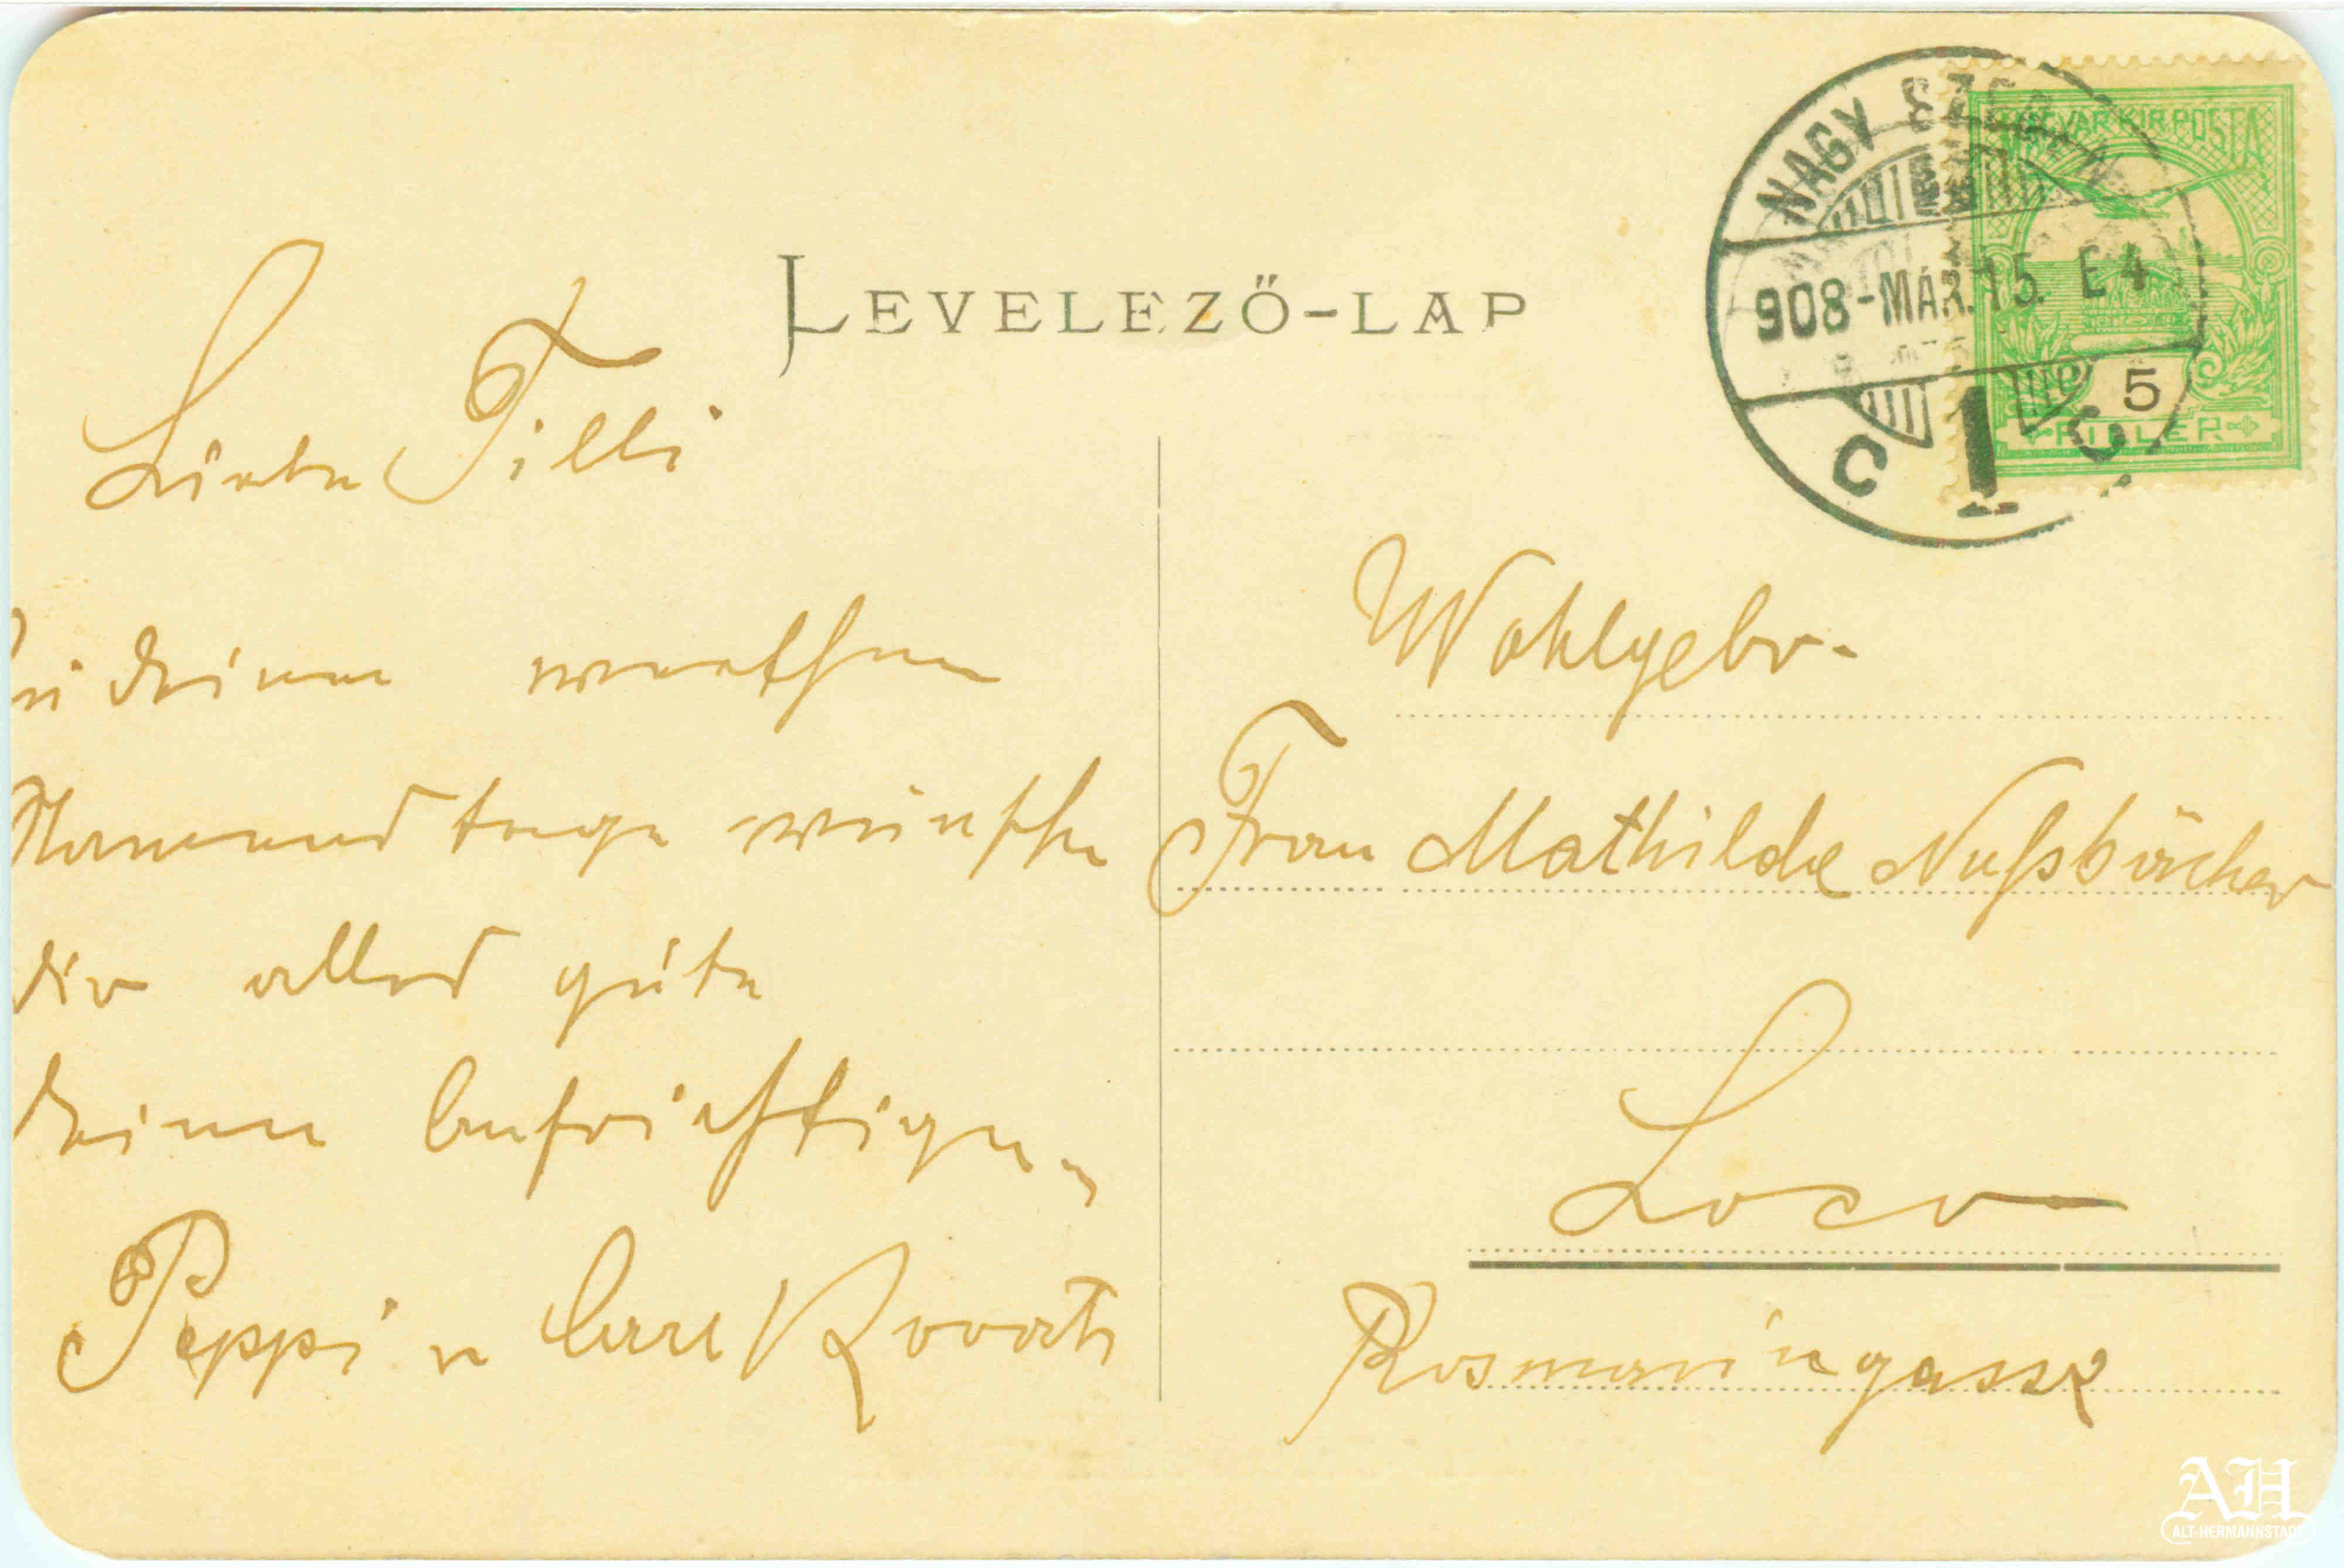 LEVELEZŐ-LAP
NAGY SZEBEN
908-MÁR.15. E4
C 1 C
MAGYAR KIR. POSTA
5
FILLER
Liebe Tilli
Zu deinem werthen
Namenstage wünsche
dir alles gute
deine aufrichtigen
Peppi u Carl
Wohlgebr.
Frau Mathilde Nußbächer
Loco
Rosmaringasse
AH
ALT-HERMANNSTADT